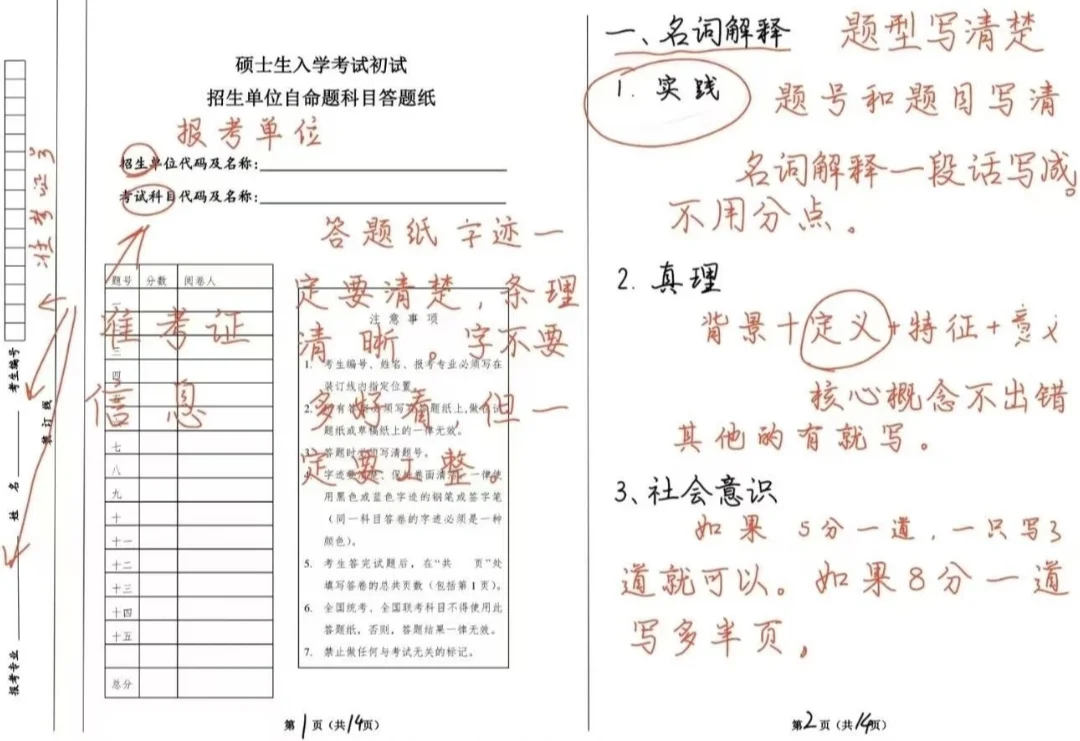 硕士生入学考试初试
招生单位自命题科目答题纸
报考单位
招生单位代码及名称：
考试科目代码及名称：
答题纸字迹一
定要清楚，条理
清晰。字不要
多好看，但一
定要工整。
准考证
信息
准考证
考生编号
姓名
报考专业
装订线
题号 分数 阅卷人
一
三
四
七
八
九
十
十一
十二
十三
十四
十五
总分
注意事项
1. 考生编号、姓名、报考专业必须写在
装订线内指定位置。
题纸或草稿纸上的一律无效。
用黑色或蓝色字迹的钢笔或签字笔
（同一科目答卷的字迹必须是一种
颜色）。
5. 考生答完试题后，在“共 页”处
填写答卷的总共页数（包括第1页）。
6. 全国统考、全国联考科目不得使用此
答题纸，否则，答题结果一律无效。
7. 禁止做任何与考试无关的标记。
第1页（共14页）
一、名词解释 题型写清楚
1. 实践 题号和题目写清
名词解释一段话写成。
不用分点。
2. 真理
背景+定义+特征+意义
核心概念不出错
其他的有就写。
3、社会意识
如果5分一道，一只写3
道就可以。如果8分一道
写多半页。
第2页（共14页）